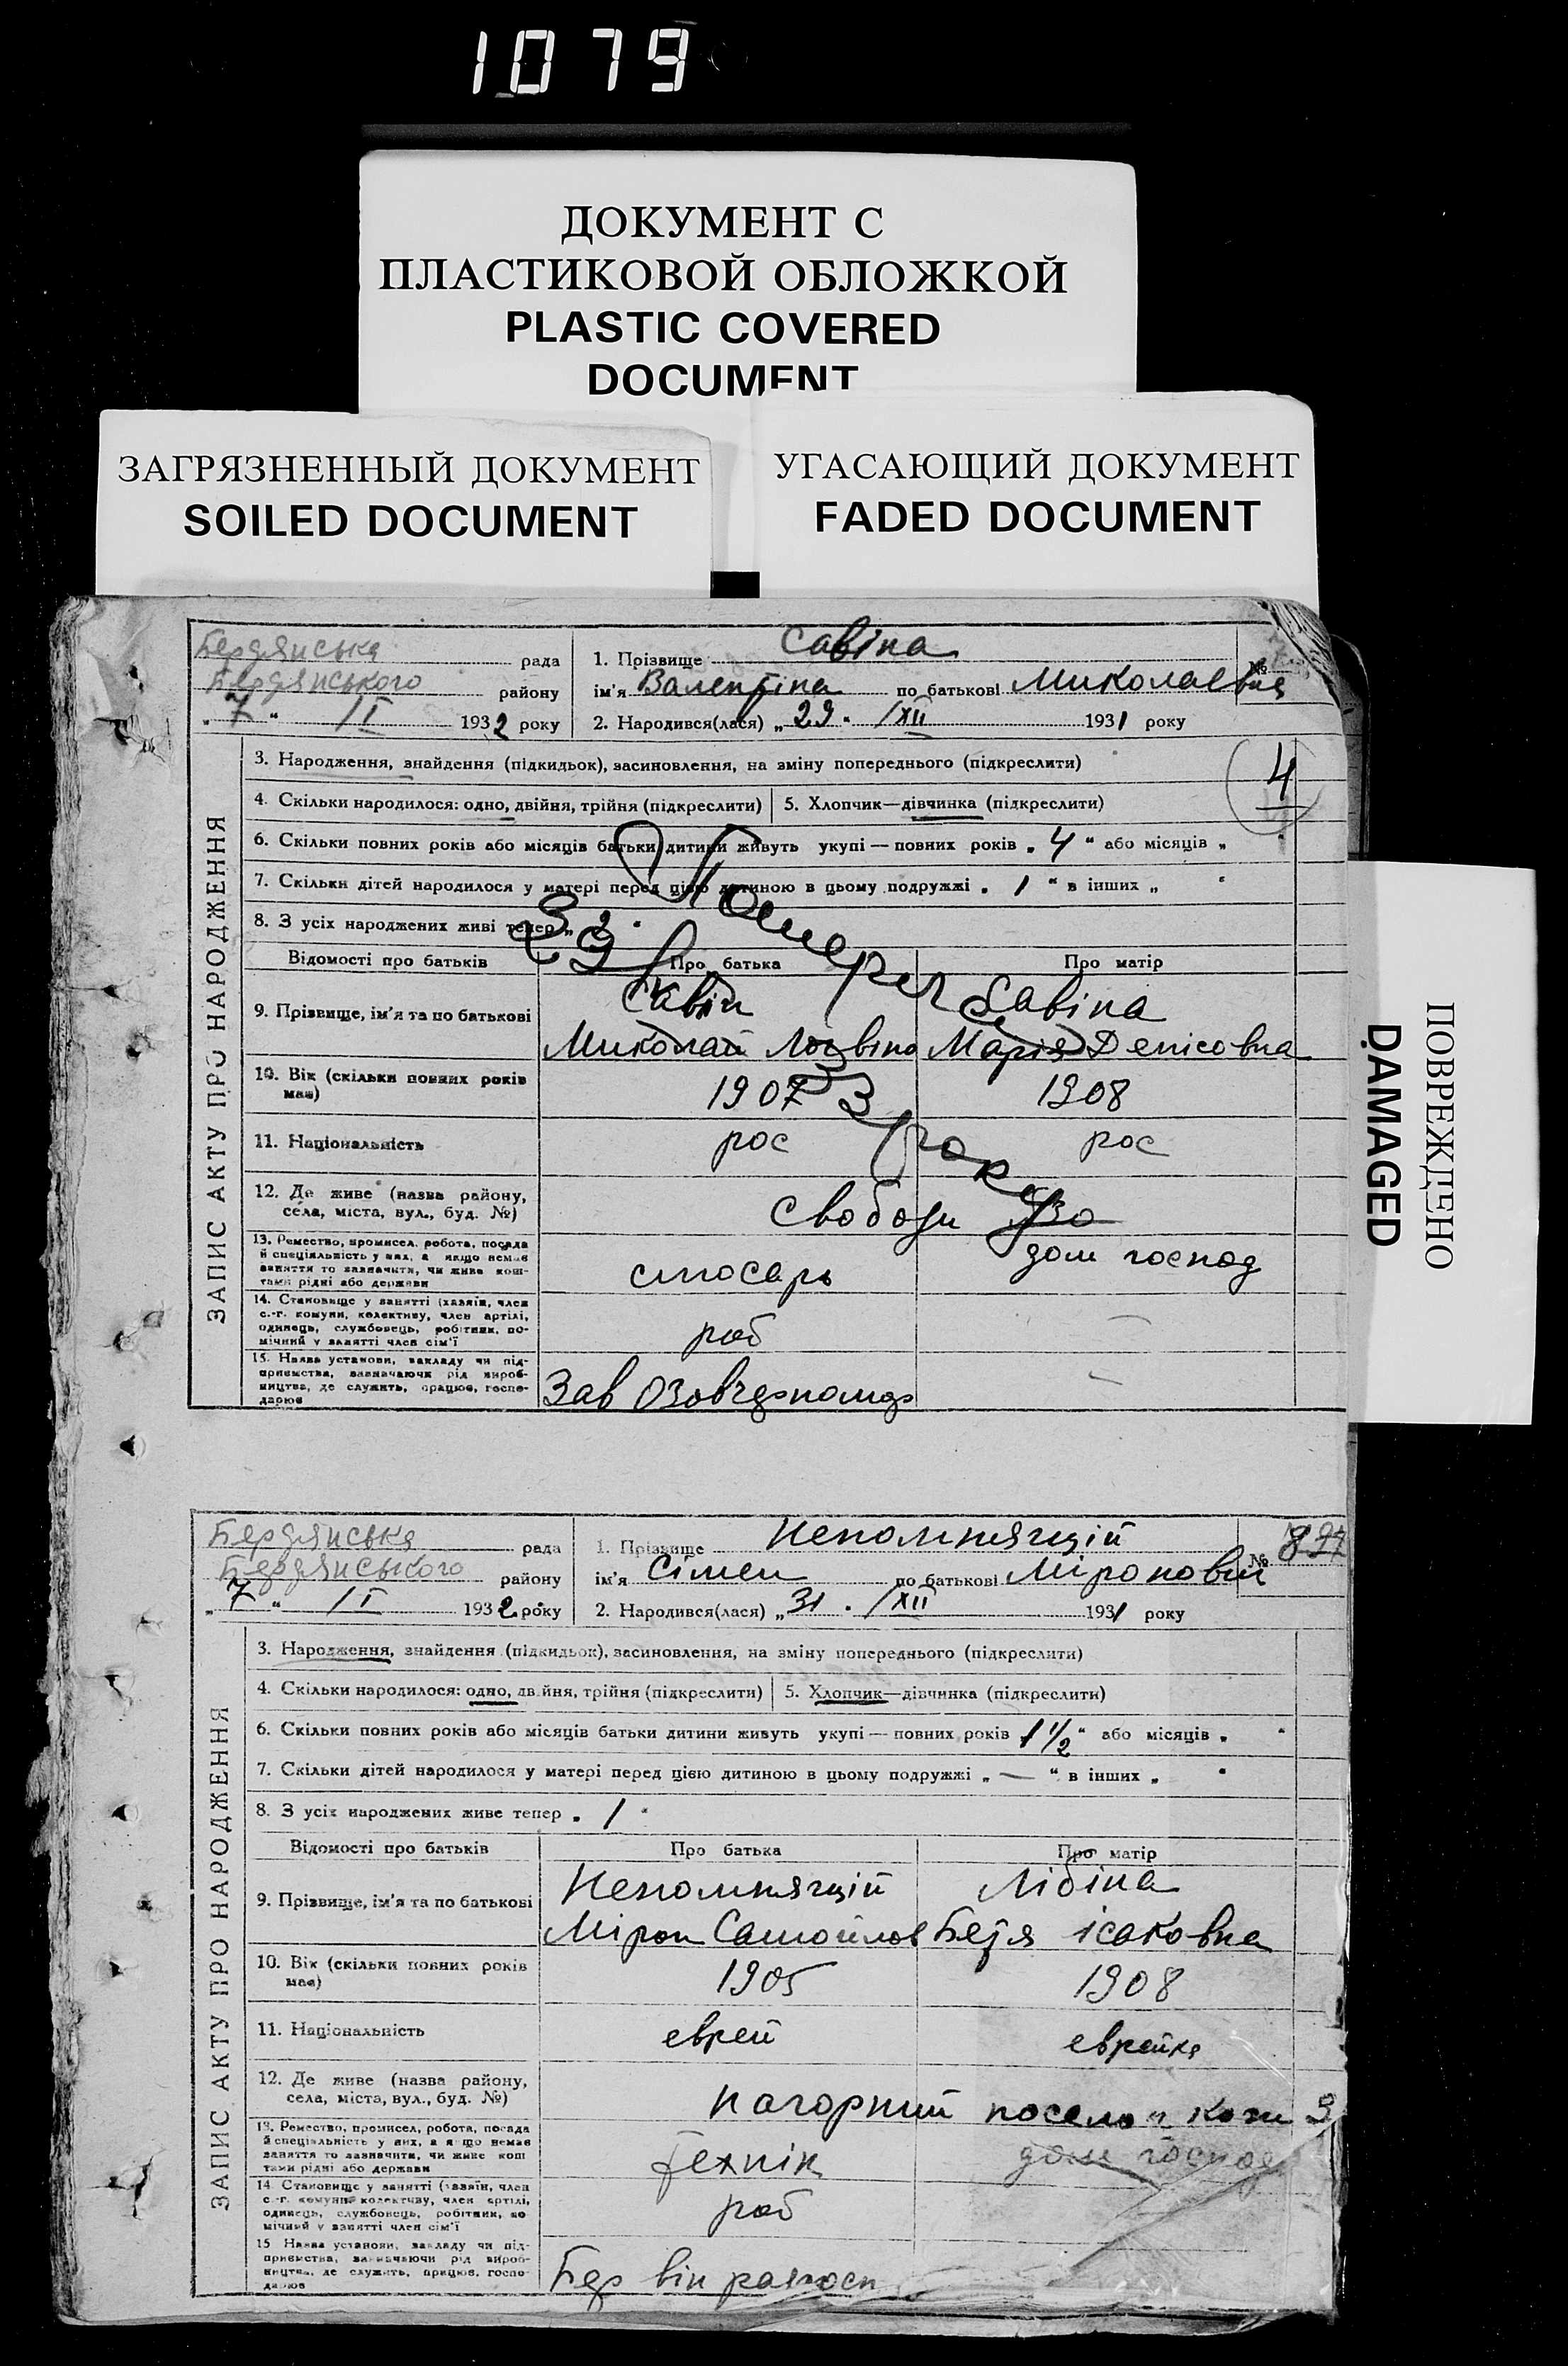 1079
ДОКУМЕНТ С
ПЛАСТИКОВОЙ ОБЛОЖКОЙ
PLASTIC COVERED
DOCUMENT
ЗАГРЯЗНЕННЫЙ ДОКУМЕНТ
SOILED DOCUMENT
УГАСАЮЩИЙ ДОКУМЕНТ
FADED DOCUMENT
ПОВРЕЖДЕНО
DAMAGED
ЗАПИС АКТУ ПРО НАРОДЖЕННЯ
Бердянська рада
Бердянського району
„ 7 “ /I 1932 року
1. Прізвище Савіна
№
ім'я Валентіна по батькові Миколаевна
2. Народився(лася) „ 29 “ /XII 1931 року
3. Народження, знайдення (підкидьок), васиновлення, на зміну попереднього (підкреслити)
4
4. Скільки народилося: одно, двійня, трійня (підкреслити) 5. Хлопчик—дівчинка (підкреслити)
6. Скільки повних років або місяців батьки дитини живуть укупі — повних років „ 4 “ або місяців „ “
7. Скільки дітей народилося у матері перед цією дитиною в цьому подружжі „ 1 “ в інших „ “
8. З усіх народжених живі тепер „ 2 “
Відомості про батьків Про батька Про матір
9. Прізвище, ім'я та по батькові
Савін Савіна
Миколай Марія Денісовна
10. Вік (скільки повних років має)
1907 1908
11. Національність рос рос
12. Де живе (назва району, села, міста, вул., буд. №)
Свободи
13. Ремество, промисел, робота, посада й спеціяльність у них, а якщо немає заняття то зазначити, чи живе коштами рідні або держави
слюсарь дом господ
14. Становище у занятті (хазяїн, член с.-г. комуни, колективу, член артілі, одинець, службовець, робітник, помічний у занятті член сім'ї
роб
15. Назва установи, закладу чи підприємства, зазначаючи рід виробництва, де служить, працює, господарює
Зав —
ЗАПИС АКТУ ПРО НАРОДЖЕННЯ
Бердянська рада
Бердянського району
„ 7 “ /I 1932 року
1. Прізвище Непомнящій
№
ім'я Сімен по батькові Міронович
2. Народився(лася) „ 31 “ /XII 1931 року
3. Народження, знайдення (підкидьок), васиновлення, на зміну попереднього (підкреслити)
4. Скільки народилося: одно, двійня, трійня (підкреслити) 5. Хлопчик—дівчинка (підкреслити)
6. Скільки повних років або місяців батьки дитини живуть укупі — повних років 1 1/2 “ або місяців „ “
7. Скільки дітей народилося у матері перед цією дитиною в цьому подружжі „ — “ в інших „ “
8. З усіх народжених живе тепер „ 1 “
Відомості про батьків Про батька Про матір
9. Прізвище, ім'я та по батькові
Непомнящій Лібіна
Мірон Самойлов Бетя ісаковна
10. Вік (скільки повних років має)
1905 1908
11. Національність еврей еврейка
12. Де живе (назва району, села, міста, вул., буд. №)
нагорний поселок
13. Ремество, промисел, робота, посада й спеціяльність у них, а якщо немає заняття то зазначити, чи живе коштами рідні або держави
технік дом господ
14. Становище у занятті (хазяїн, член с.-г. комуни, колективу, член артілі, одинець, службовець, робітник, помічний у занятті член сім'ї
роб
15. Назва установи, закладу чи підприємства, зазначаючи рід виробництва, де служить, працює, господарює
Бер він